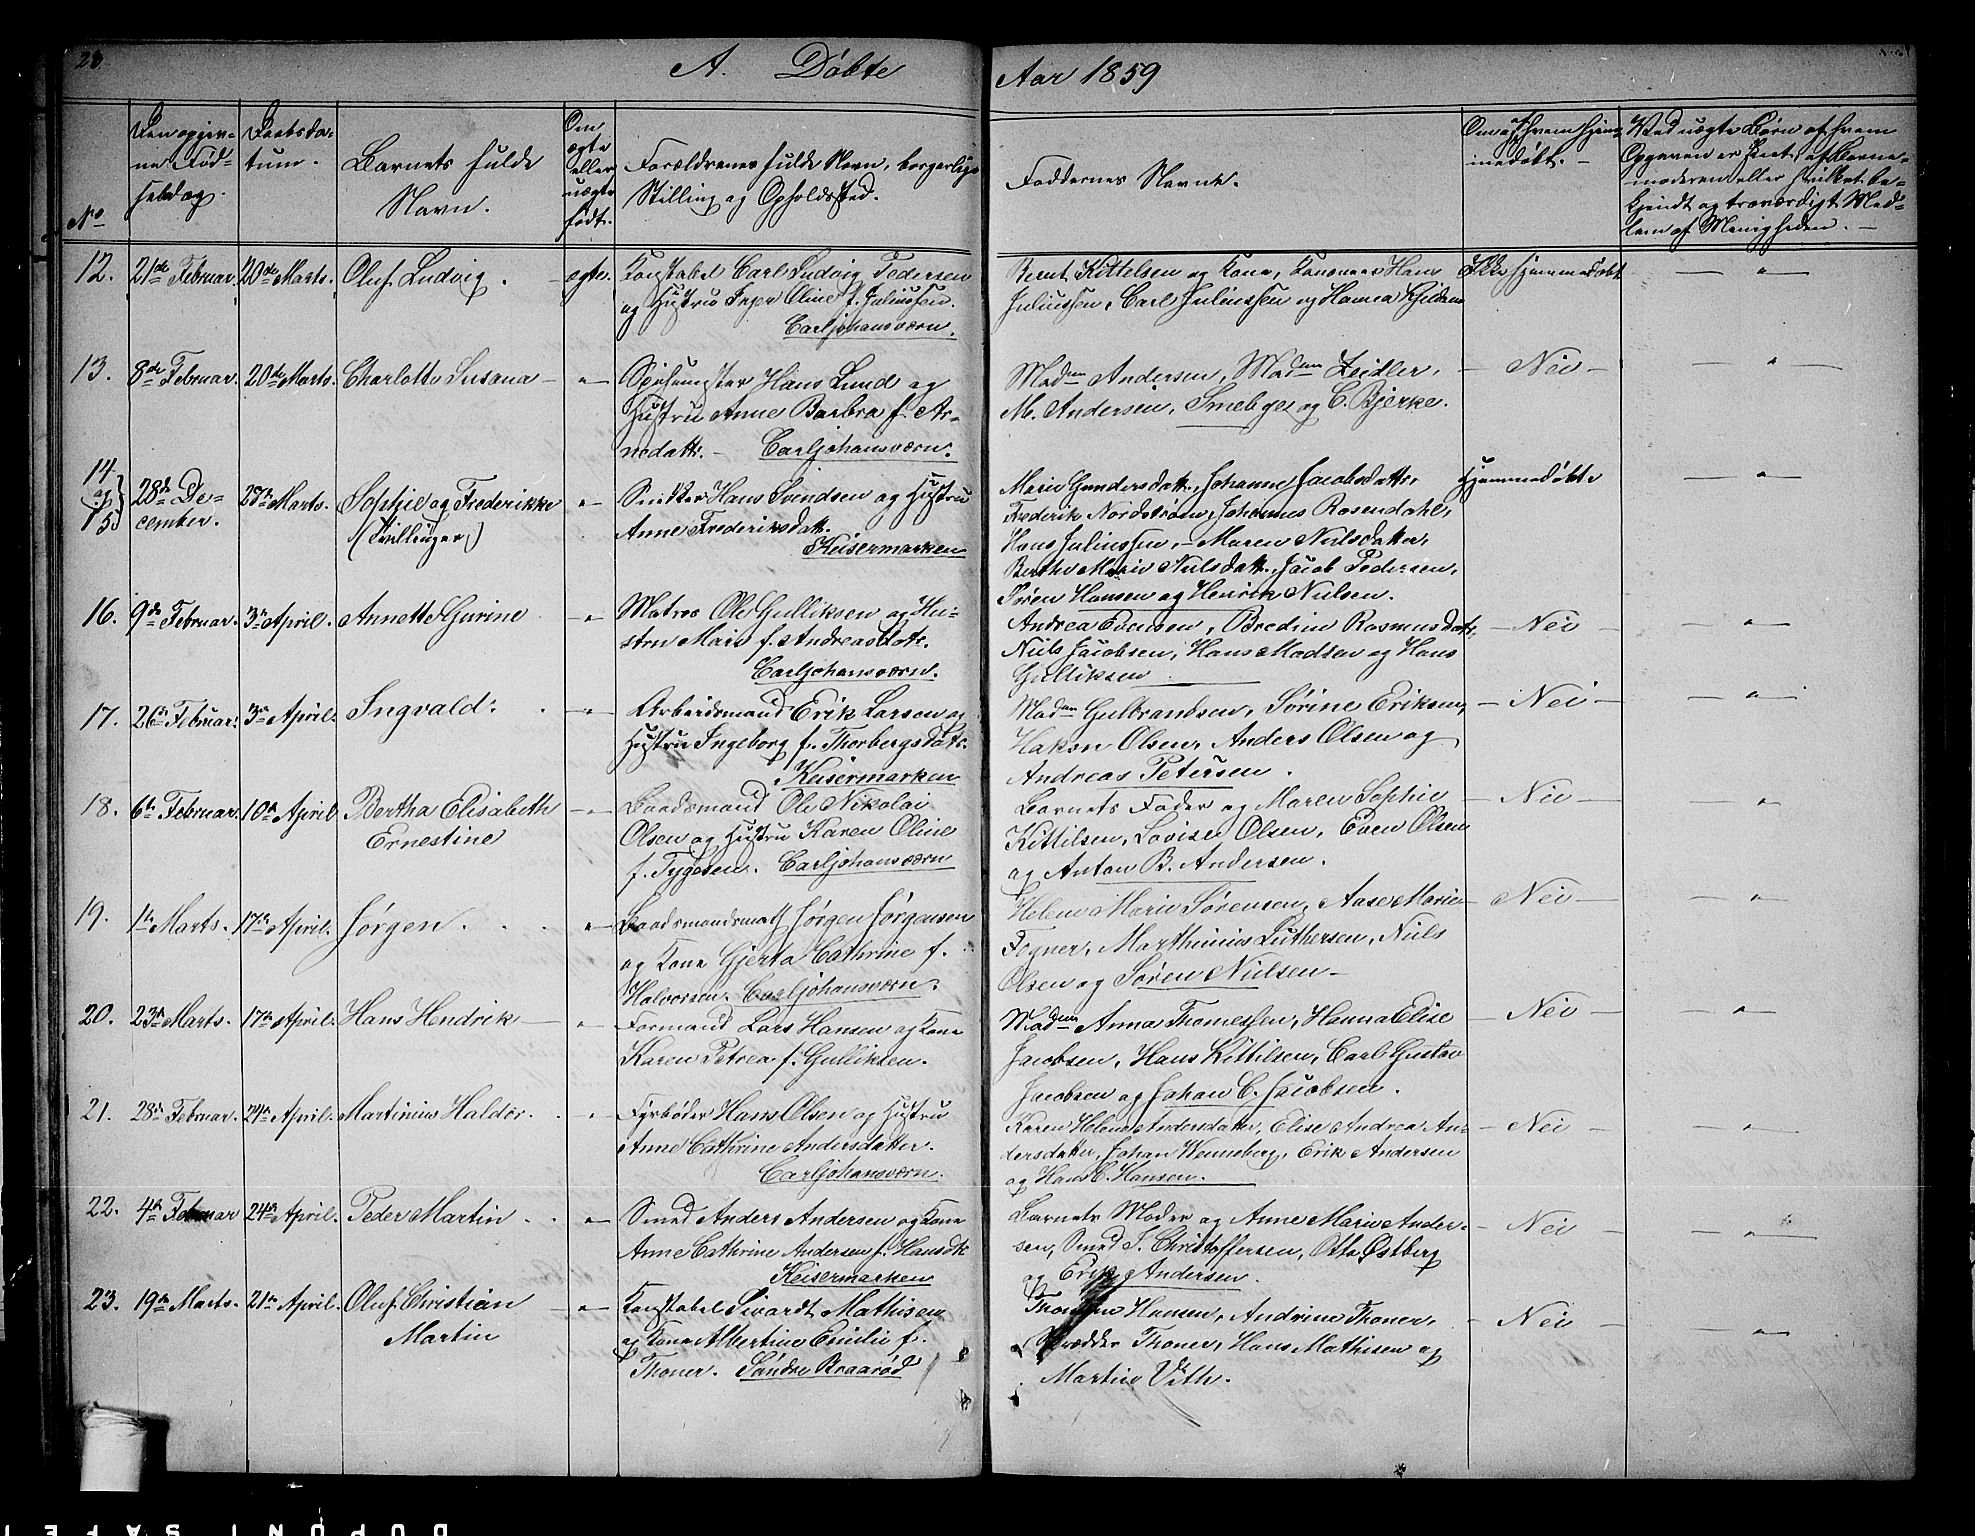 A. Døbte
Aar 1859
No
Den opgiv-
ne Fød-
selsdag.
Daabsda-
tum.
Barnets fulde
Navn.
Om
ægte
eller
uægte
født.
Forældrenes fulde Navn, borgerlige
Stilling og Opholdssted.
Faddernes Navne.
Om af hvem hjem-
medøbt.
Ved uægte Børn af hvem
Opgaven er skeet, af Barne-
moderen eller hvilket be-
kjendt og troværdigt Med-
lem af Menigheden.
12. 21de Februar. 20de Marts. Oluf Ludvig. ægte.
Konstabel Carl Ludvig Pedersen
og Hustru Inger Oline f. Juliussen.
Carljohansværn.
Bernt Kittelsen og Kone, Hans
Juliussen, Carl Juliussen og Hanna
Ikke hjemmedøbt — " —
13. 8de Februar. 20de Marts. Charlotte Susana — " —
Hans Lund og
Hustru Anne Barbra f. Ar-
nedattr. — Carljohansværn.
Madm Andersen, Madm Zeidler,
M. Andersen, og C. Bjerke.
— Nei — — " —
14
og
15 28de De-
cember. 27de Marts. Sophie og Frederikke
(Tvillinger) — " —
Snekker Hans Svendsen og Hustru
Anne Frederiksdatt.
Keisermarken
Marie Gundersdatt., Johanne Jacobsdattr,
Frederik Nordstrøm, Johannes Rosendahl,
Hans Juliussen, — Maren Nielsdatter,
Berthe Marie Nielsdatt., Jacob Pedersen,
Søren Hansen og Henrik Nielsen.
Hjemmedøbte — " —
16. 9de Februar. 3de April. Annette Gurine — " —
Matros Ole Gulliksen og Hu-
stru Maren f. Andreasdatr.
Carljohansværn.
Andrea Evensen, Bredine Rasmusdatr,
Niels Jacobsen, Hans Madsen og Hans
Gulliksen
— Nei — — " —
17. 26de Februar. 3de April. Ingvald. — " —
Arbeidsmand Erik Larsen og
Hustru Ingeborg f. Thorbergsdatr.
Keisermarken
Madm Gulbrandsen, Sørine Eriksen,
Hakon Olsen, Anders Olsen og
Andreas Petersen.
— Nei — — " —
18. 6te Februar. 10de April Bertha Elisabeth
Ernestine — " —
Baadsmand Ole Nikolai
Olsen og Hustru Karen Oline
f. Tygesen. Carljohansværn
Barnets Fader og Maren Sophie
Kittilsen, Lovise Olsen, Even Olsen
og Anton B. Andersen.
— Nei — — " —
19. 1te Marts. 17de April. Jørgen. — " —
Baadsmandsmath Jørgen Jørgensen
og Kone Gjerta Cathrine f.
Halvorsen. Carljohansværn.
Helene Marie Sørensen, Aase Marie
Fogner, Marthinius Luthersen, Niels
Olsen og Søren Nielsen —
— Nei — — " —
20. 23de Marts. 17de April. Hans Hendrik — " —
Formand Lars Hansen og Kone
Karen Petrea f. Gulliksen.
Madm Anna Thomessen, Hanna Elise
Jacobsen, Hans Kittilsen, Carl Gustav
Jacobsen og Johan C. Jacobsen.
— Nei — — " —
21. 28de Februar. 24de April. Martinius Haldor. — " —
Fyrbøder Hans Olsen og Hustru
Anne Cathrine Andersdatter.
Carljohansværn.
Karen Helene Andersdatter, Elise Andrea An-
dersdatter, Johan Wenneberg, Erik Andersen
og Hans C. Hansen.
— Nei — — " —
22. 4de Februar 24de April. Peder Martin — " —
Smed Anders Andersen og Kone
Anne Cathrine Andersen f. Hansdtr
Keisermarken
Barnets Moder og Anne Marie Ander-
sen, Smed S. Christoffersen, Otto Østberg
og Erik Andersen.
— Nei — — " —
23. 19de Marts. 21de April. Oluf Christian
Martin — " —
Konstabel Sivardt Mathisen
og Kone Albertine Emilie f.
Thoner. Søndre Braarød
Hansen, Andrine Thoner,
Skrædder Thoner, Hans Mathisen og
Martin Vith.
— Nei — — " —